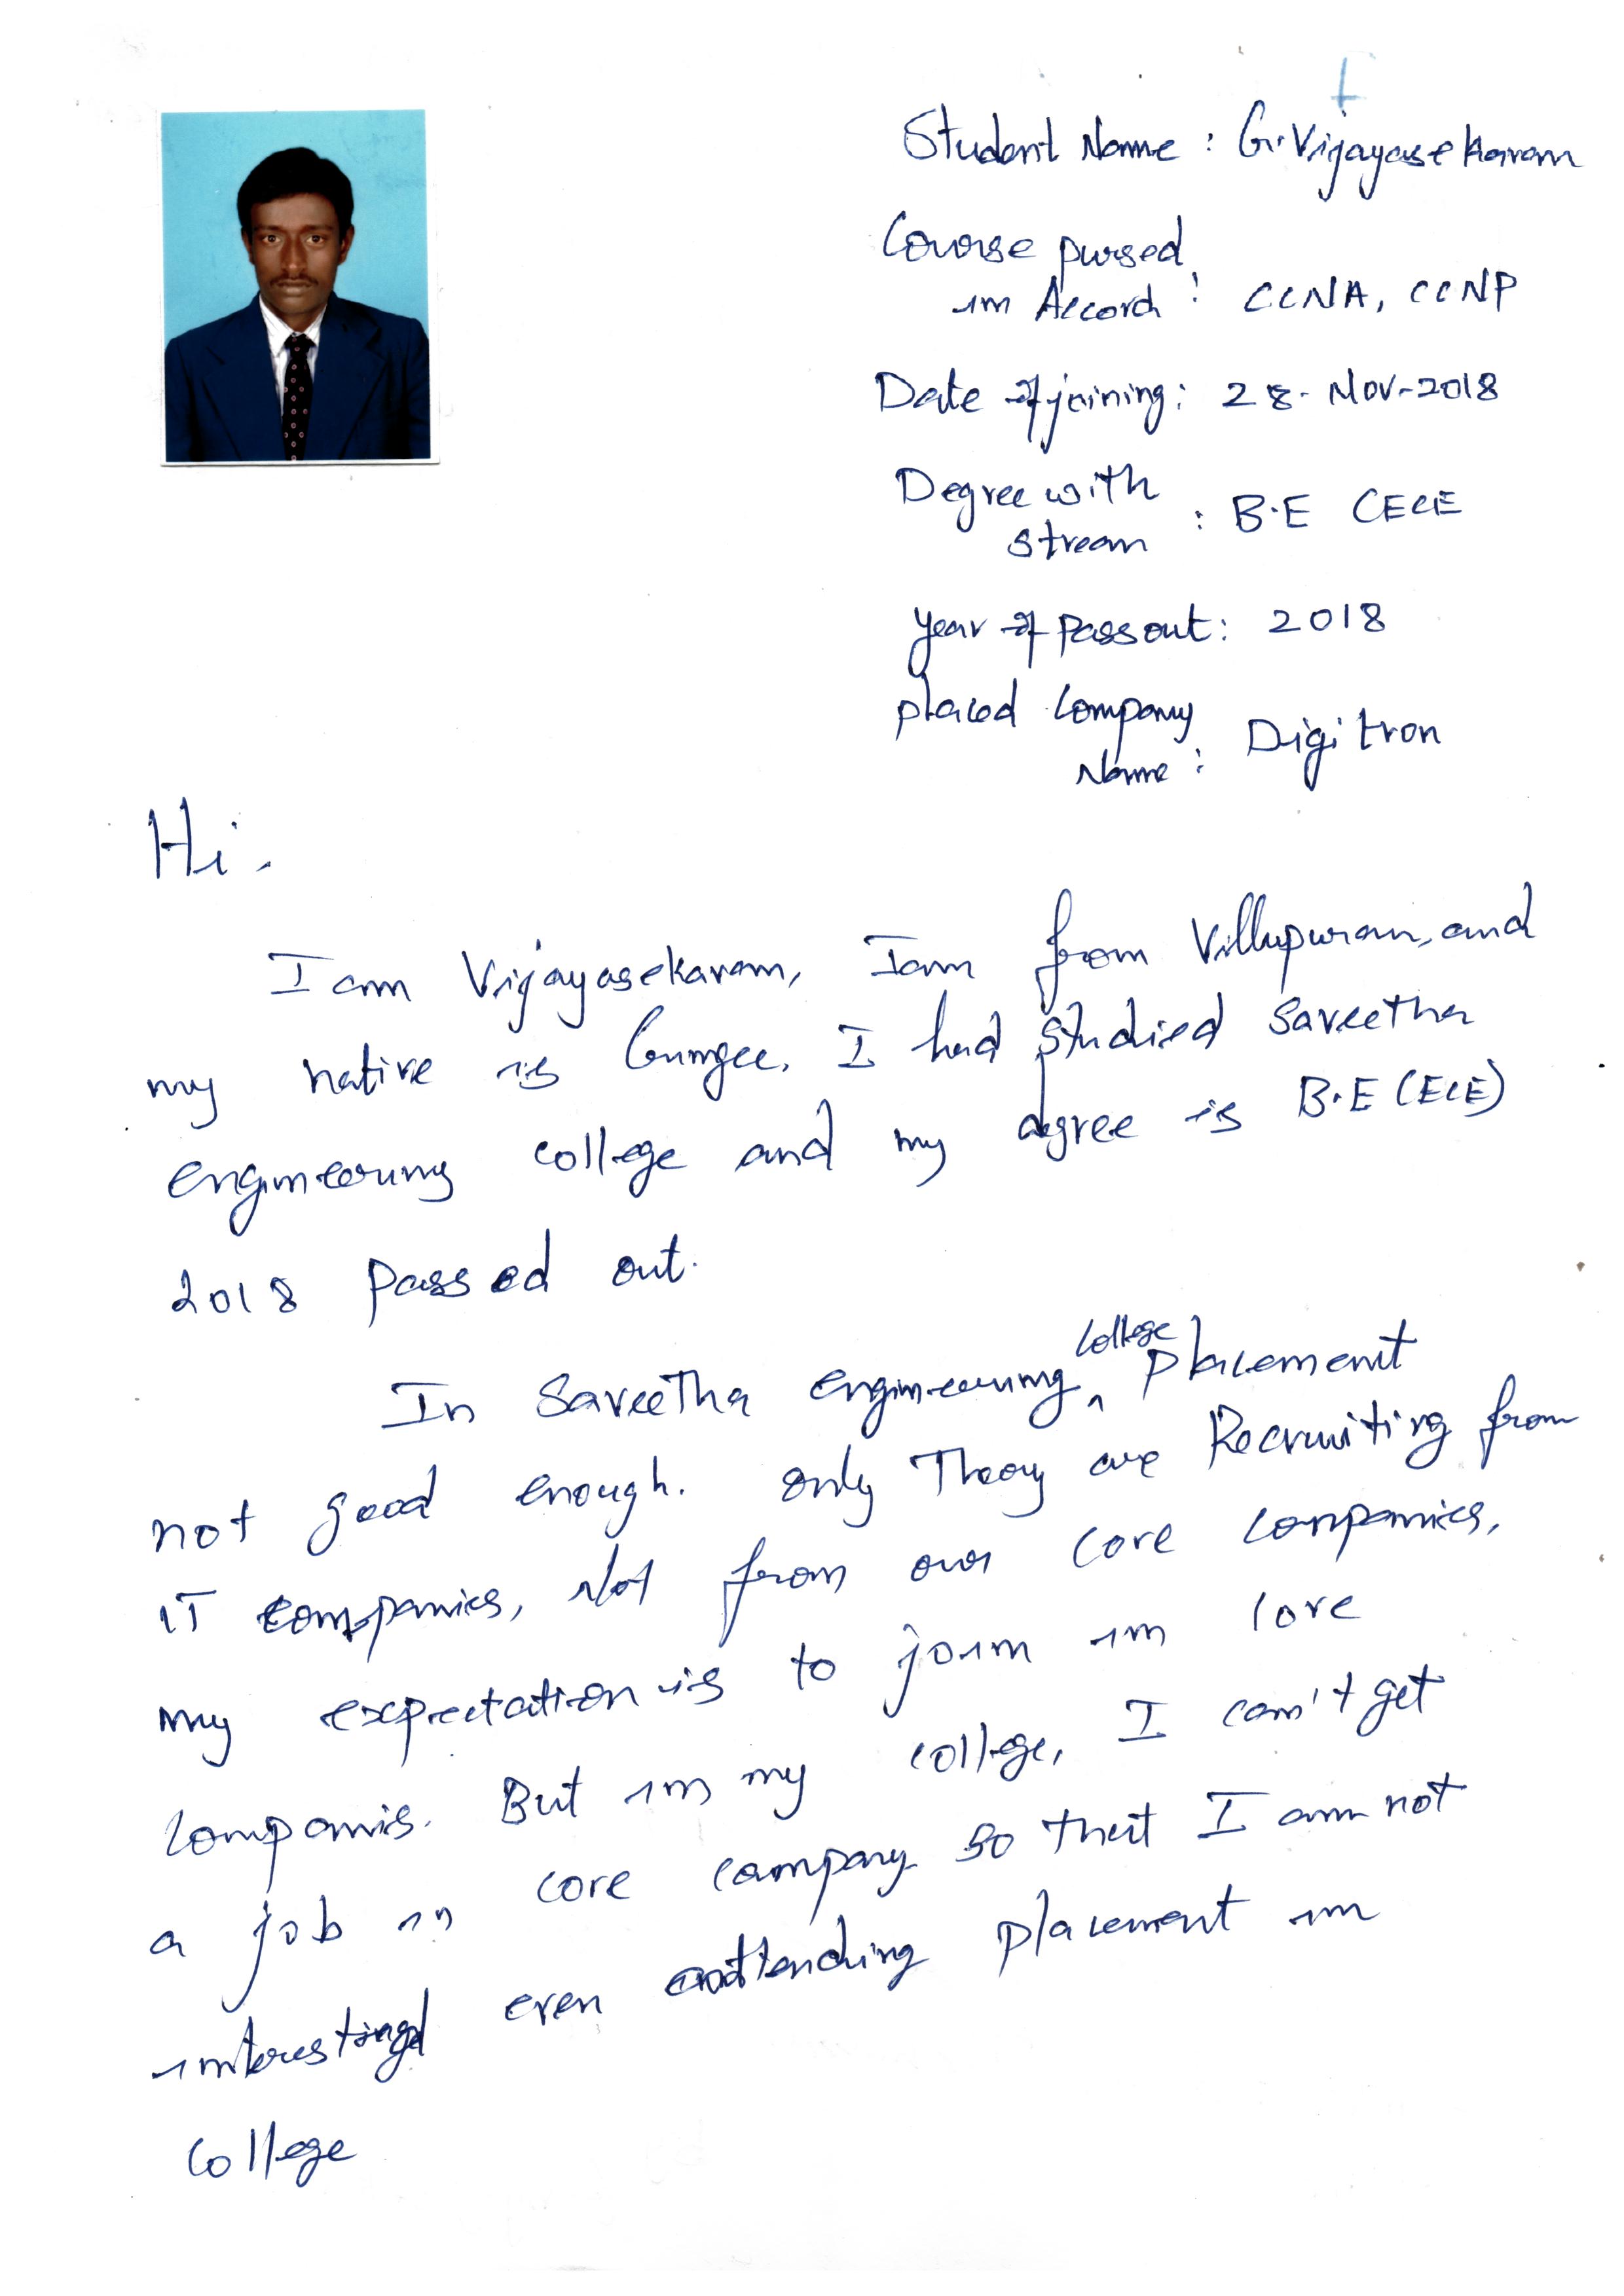 Student Name : G. Vijayasekaram
Course pursed
in Accord : CCNA, CCNP
Date of joining : 28-Nov-2018
Degree with
stream : B.E CECE
Year of Passout : 2018
placed Company
Name : Digitron
Hi.
I am Vijayasekaram, Iam from Villupuram, and
my native is Gungee. I had studied Saveetha
Engineering college and my degree is B.E (ECE)
2018 Passed out.
In Saveetha engineering college placement
not good enough. only They are Recruiting from
IT companies, Not from our core companies.
my expectation is to join in core
companis. But in my college, I can't get
a job in core company so that I am not
interested even attending placement in
college